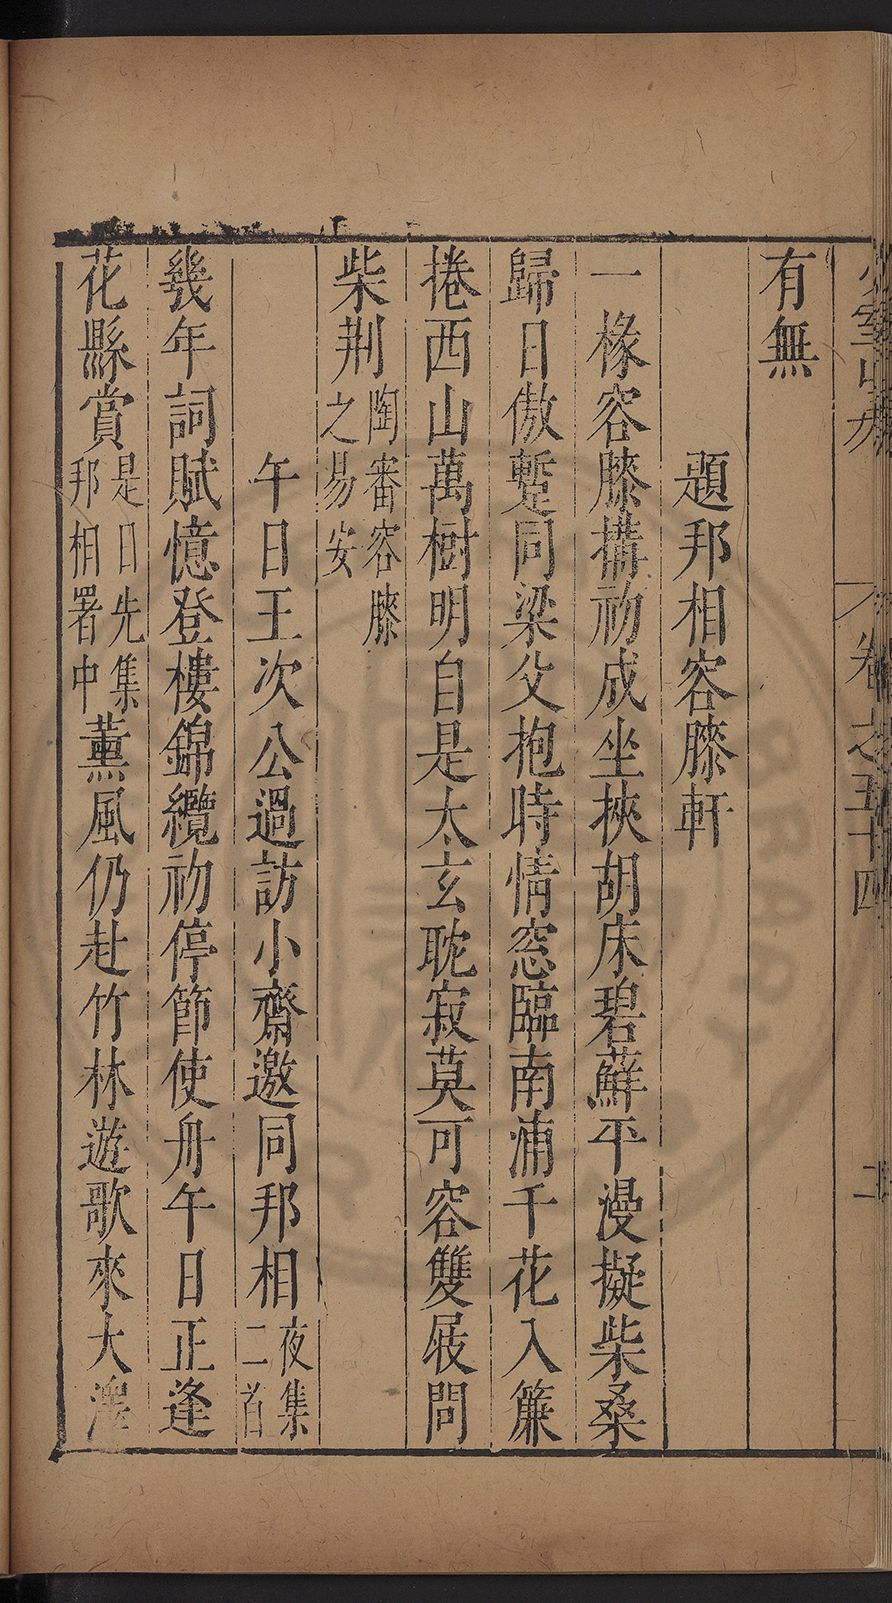 卷之五十四
有無
題邦相容膝軒
一椽容膝搆初成坐挾胡床碧蘚平漫擬柴桑
歸日傲蹔同梁父抱時情窓臨南浦千花入簾
捲西山萬樹明自是太玄耽寂莫可容雙屐問
柴荆陶審容膝
之易安
午日王次公過訪小齋邀同邦相夜集
二首
幾年詞賦憶登樓錦纜初停節使舟午日正逢
花縣賞是日先集
邦相署中薰風仍赴竹林遊歌來大澤